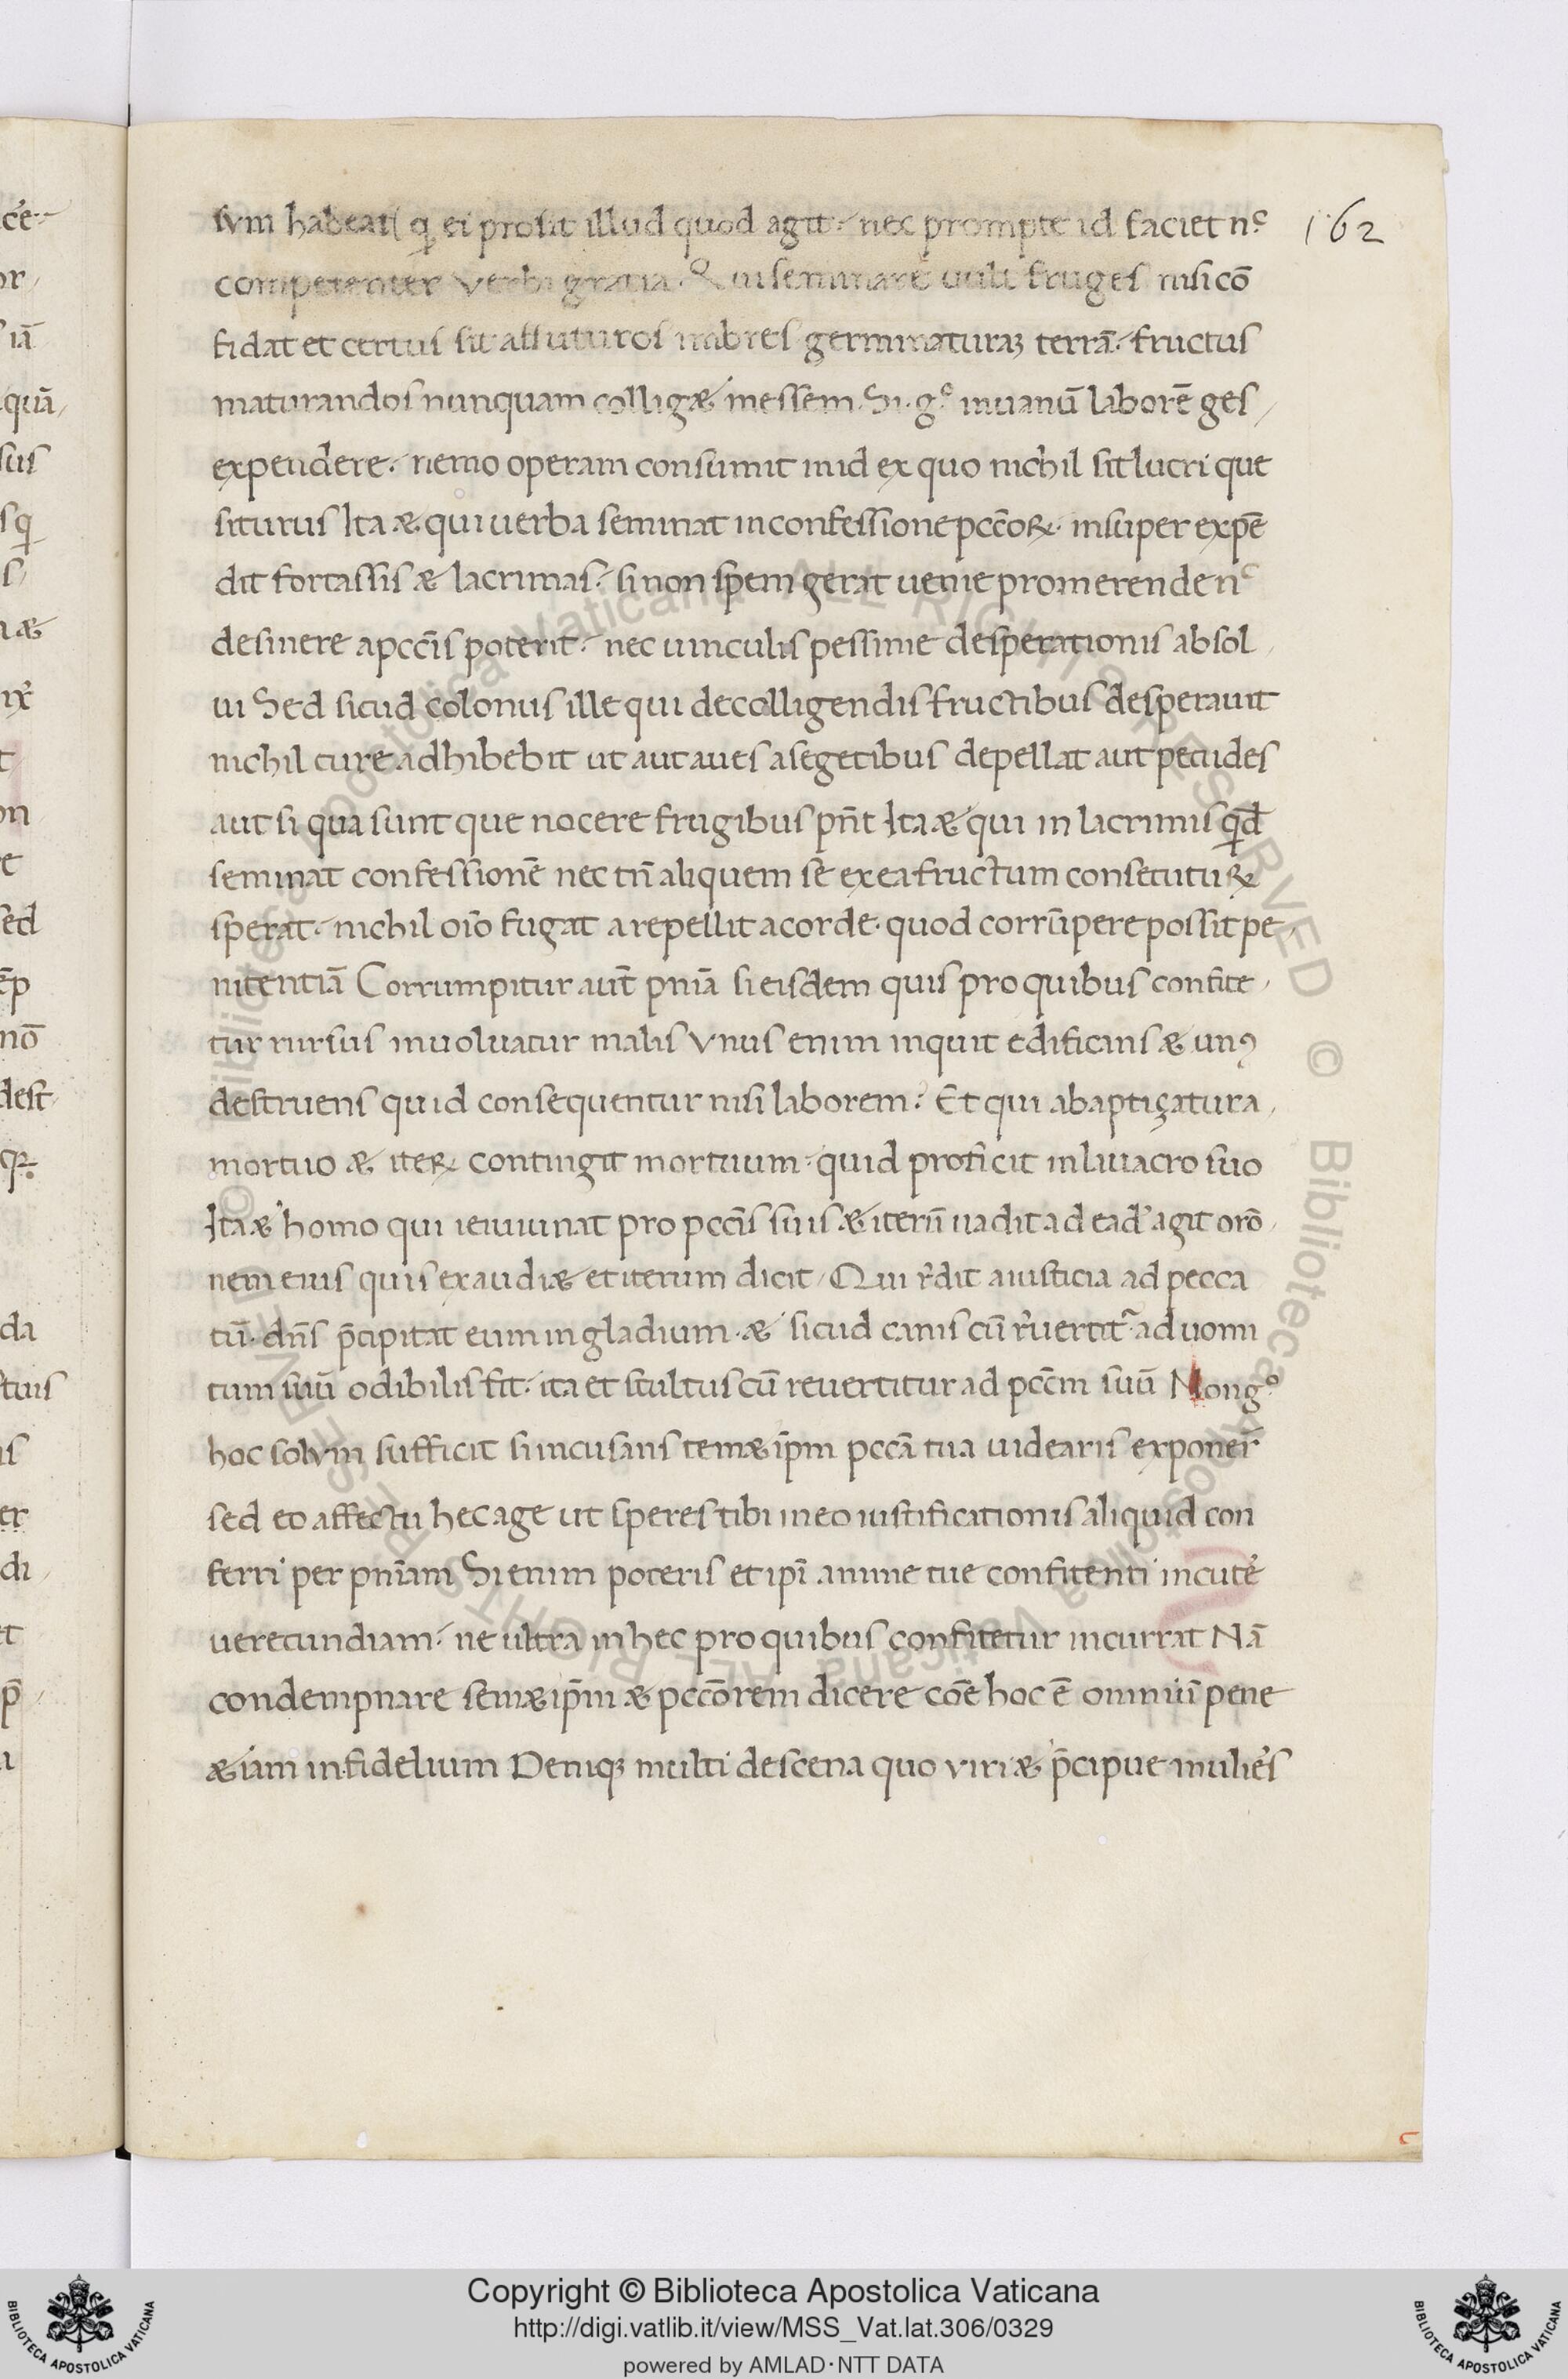 sum habeat q̃ ei prosit illud quod agit. nec prompte id faciet nͨ 162
competenter verbi gratia. Qui seminare uult fruges nisi cō
fidat et certus sit affuturos imbres germinaturaʒ terrā. fructus
maturandos nunquam colligæ messem. Si. g° in uanū laborē ges
expendere. nemo operam consumit in id ex quo nichil sit lucri que
siturus Ita æ qui uerba seminat in confessione pccōꝝ. insuper expē
dit fortassis æ lacrimas. si non spem gerat uenie promerende nͨ
desinere a pccīs poterit. nec uinculis pessime desperationis absol
ui Sed sicud colonus ille qui de colligendis fructibus desperauit
nichil cure adhibebit ut aut aues a segetibus depellat aut pecudes
aut si qua sunt que nocere frugibus pn̄t Ita æ qui in lacrimis q̄d
seminat confessionē nec tn̄ aliquem se ex ea fructum consecutuꝝ
sperat. nichil oīo fugat a repellit a corde. quod corrūpere possit pe
nitentiā Corrumpitur aūt pniā si eisdem quis pro quibus confite
tur rursus inuoluatur malis Vnus enim inquit edificans æ unꝯ
destruens quid consequentur nisi laborem? Et qui abaptiçatura
mortuo æ iteꝝ contingit mortuum. quid proficit in liuacro suo
Ita æ homo qui ieiuiunat pro pccīs suis æ iterū uadit ad ead' agit orō
nem eius quis exaudiæ et iterum dicit, Qui r̄dit a iusticia ad pecca
tū. dn̄s p̄cipitat eum in gladium. æ sicud canis cū r̄uertit᷑ ad uomi
tum suū odibilis fit. ita et stultus cū reuertitur ad pccm̄ suū Non g°
hoc solum sufficit si incusans temæ ip̄m pccā tua uidearis exponer̄
sed eo affectu hec age ut speres tibi in eo iustificationis aliquid con
ferri per pnīam Si enim poteris et ipī anime tue confitenti incuter̄
uerecundiam. ne ultra in hec pro quibus confitetur incurrat Nā
condempnare semæ ip̄m æ pccōrem dicere cōe hoc ē omniū pene
æ iam infidelium Deniqꝫ multi de scena quo viri æ p̄cipue mulieŕs
ALL RIGHTS RESERVED © Biblioteca Apostolica Vaticana
Copyright © Biblioteca Apostolica Vaticana
http://digi.vatlib.it/view/MSS_Vat.lat.306/0329
powered by AMLAD·NTT DATA
BIBLIOTECA APOSTOLICA VATICANA
BIBLIOTECA APOSTOLICA VATICANA